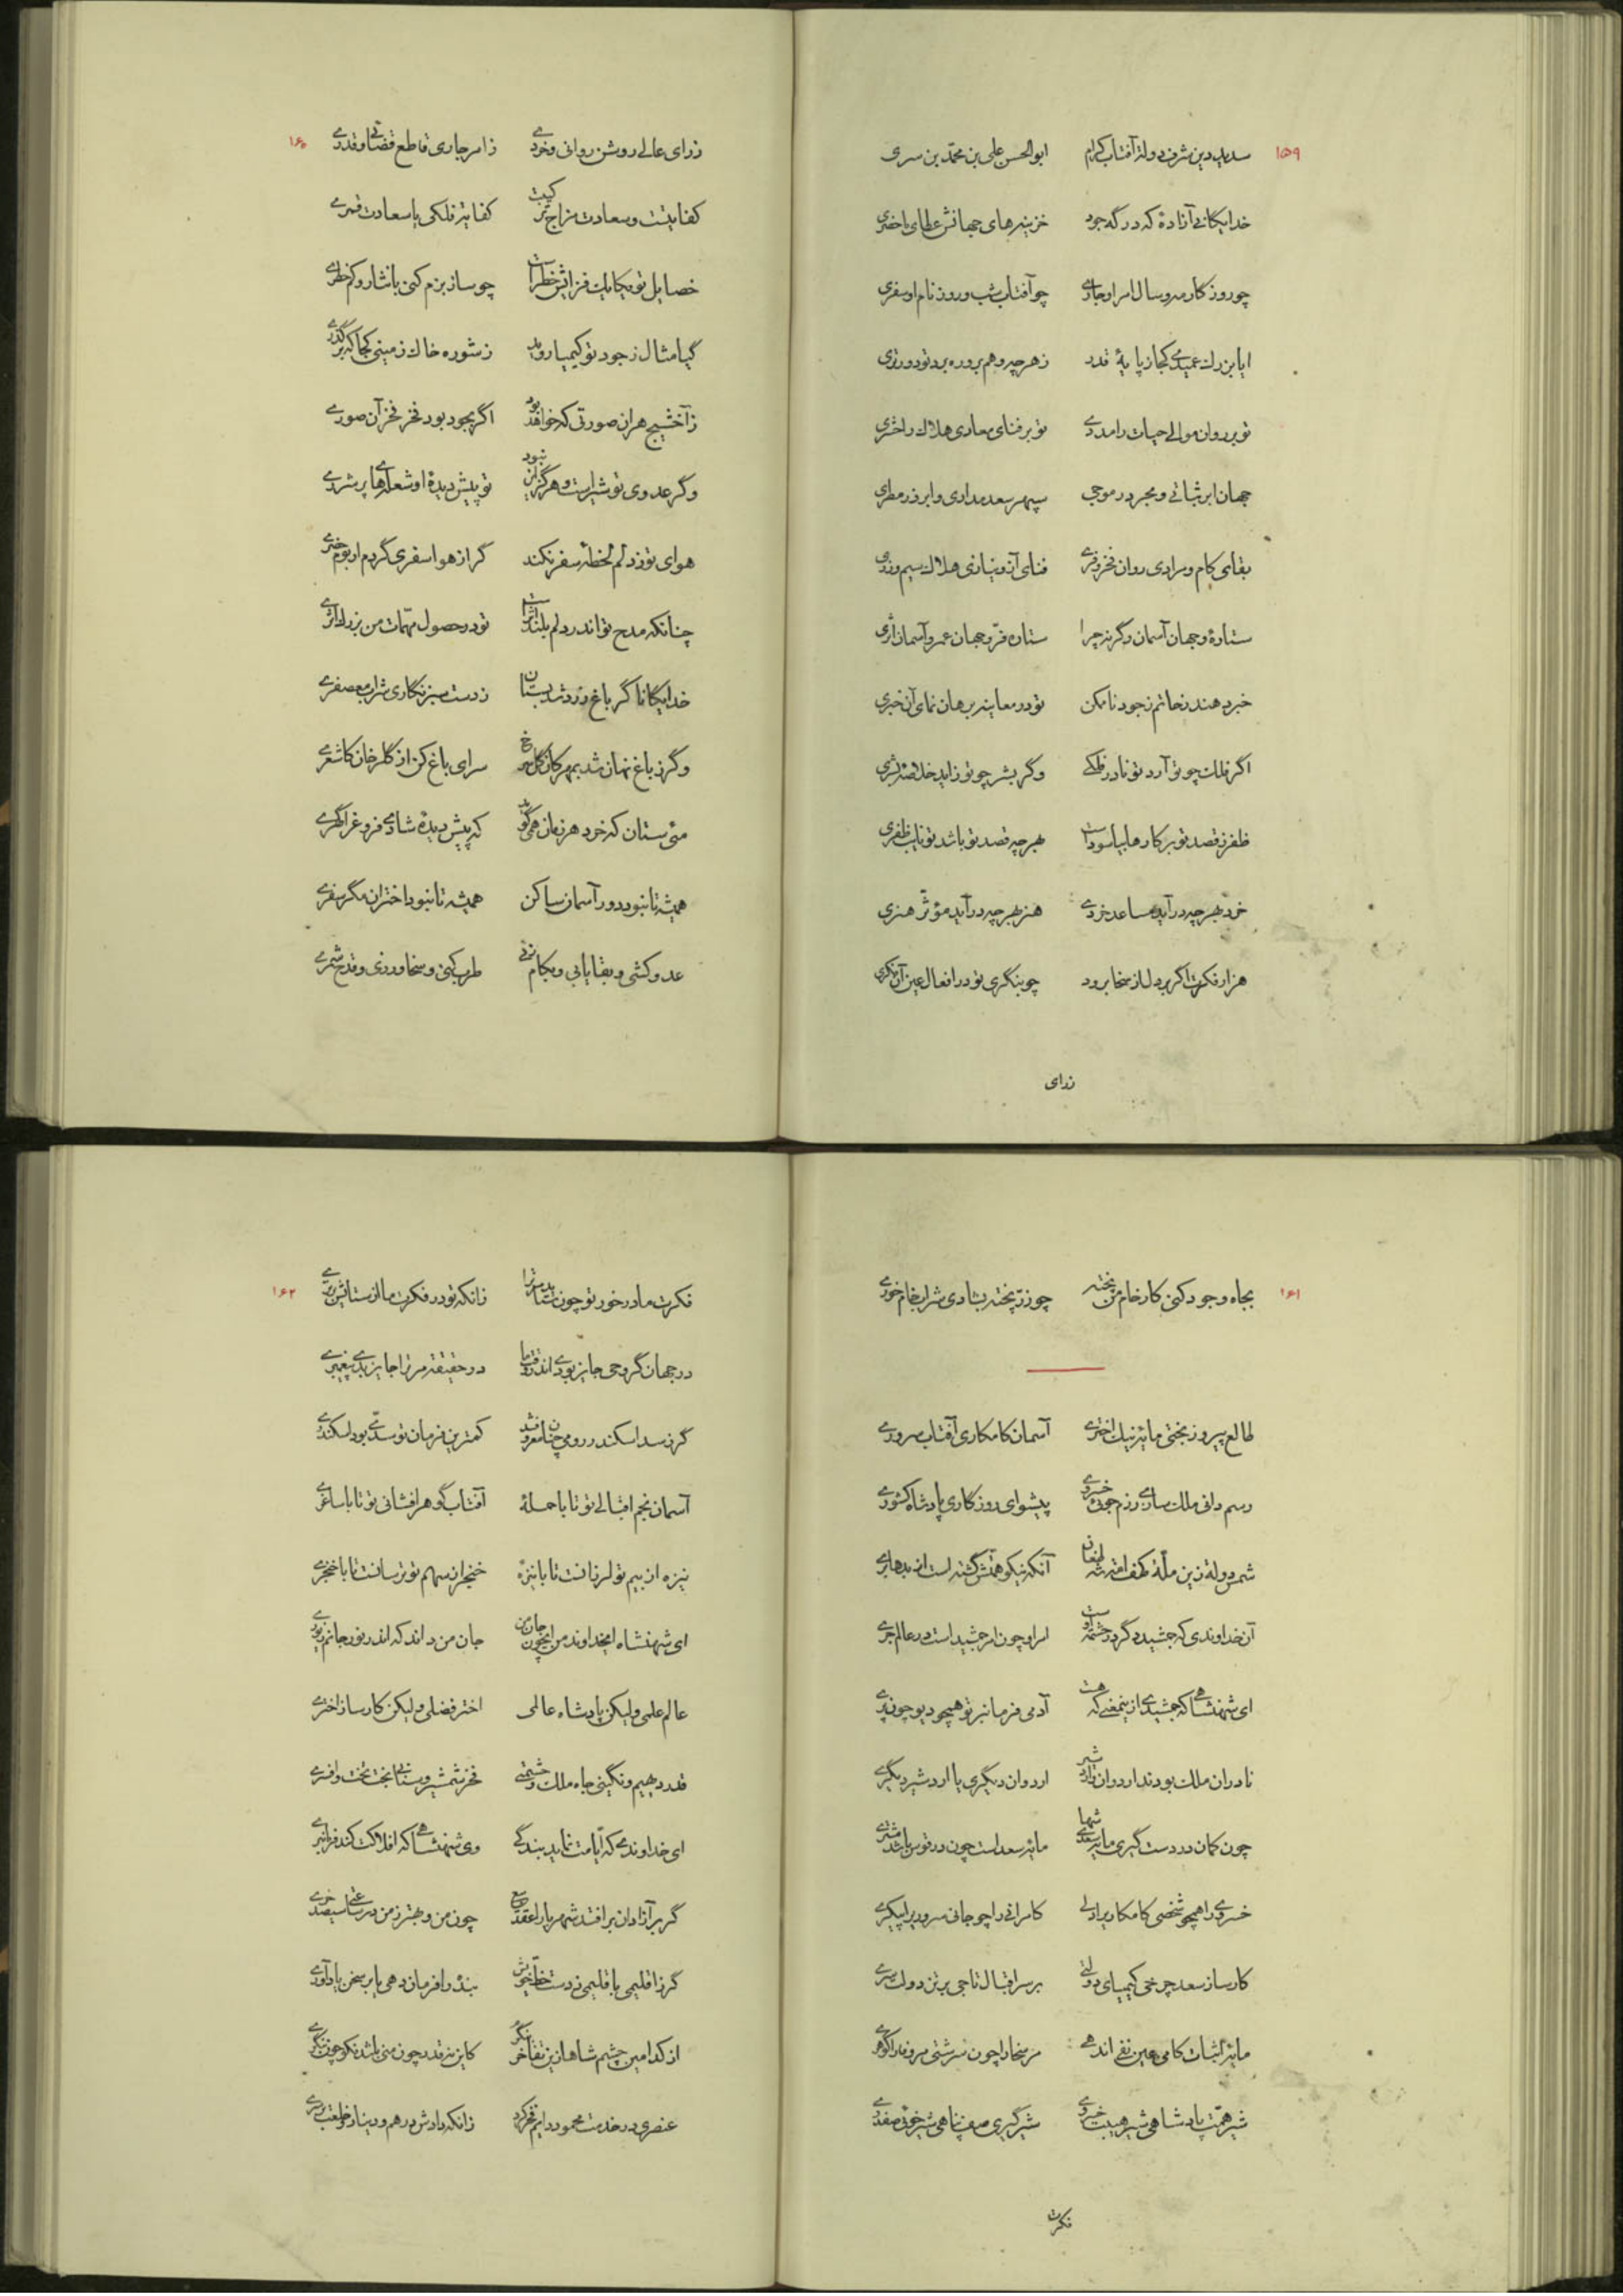 ۱۵۹
سدید دین شرف دولة آفتاب کرام ابوالحسن علی بن محمّد بن سری
خدایگانی آزادهٔ که در گه جود خزینه‌های جهانش عطای ماحضری
چو روزگار مه و سال امر او جاری چو آفتاب شب و روز نام او سفری
ایا بزرك عمیدی کجا ز پایهٔ قدر ز هر چه وهم برو ره برد تو دورتری
تو بر روان موالی حیات را مددی تو بر فنای معادی هلاك را حشری
جهان ابر ثباتی و بحر در موجی سپهر سعد مداری و ابر زر مطری
بقای کام و مرادی روان فخر و فری فنای آز و نیازی هلاك سیم و زری
ستارهٔ و جهان آسمان و گرنه چرا ستاره فرّ و جهان عمر و آسمان اثری
خبر دهند ز حاتم ز جود ناممکن تو در معاینه برهان نمای آن خبری
اگر فلك چو تو آرد تو نادر فلکی و گر بشر چو تو زاید خلاصهٔ بشری
ظفر ز قصد تو بر کارها بیاسوداست بهر چه قصد تو باشد تو نایب ظفری
خرد بهر چه درآید مساعد خردی هنر بهر چه درآید مؤثّر هنری
هزار فکرت اگر بر دل از سخا برود چو بنگری تو در افعال عین آن فکری
زرای
۱۶۰
زرای عالی روشن روانی و خردی ز امر جاری قاطع قضائی و قدری
کفایتست و سعادت مزاج ترکیبت کفایتر فلکی یا سعادت قمری
خصایل تو یکایك فزایش خطراست چو ساز بزم کنی با نثار و کم خطری
گیا مثال ز جود تو کیمیا روید ز شوره خاك زمینی کجا که برگذری
ز آخشیج هر ان صورتی که خواهد بود اگر بجود بود فخر فخر آن صوری
و گر عدوی تو شیراست و هرگز این نبود تو پیش دیدهٔ او شعلهای پر شرری
هوای تو ز دلم لحظهٔ سفر نکند گر از هوا سفری گردم او بود حضری
چنانکه مدح تو اندر دلم بلند اثراست تو در حصول مهمّات من بزرك اثری
خدایگانا گر باغ زرد شد بستان ز دست سبز نگاری شراب معصفری
و گر ز باغ نهان شد بمهرکان گل سرخ سرای باغ کن از گلرخان کاشغری
می ستان که خرد هر زمان همی گوید که پیش دیدهٔ شادی فروغ را گهری
همیشه تا نبود دور آسمان ساکن همیشه تا نبود اختران مگر سفری
عدو کشی و بقا یابی و بکام زئی طرب کنی و سخا ورزی و قدح شمری
۱۶۱
بجاه و جود کنی کار خام من پخته چو زرّ پخته بشادی شراب خام خوری
طالع پیروز بختی مایهٔ نیك اختری آسمان کامکاری آفتاب سروری
رسم دانی ملك سازی رزم جوئی خسروی پیشوای روزگاری پادشاه کشوری
شمس دولة زین ملّة کهف امّة شه طغان آنکه نیکو همّتش گشته است از بدها بری
آن خداوندی که جمشید دگر در حشمتست امر او چون امر جمشید است در عالم جری
ای شهنشاهی که جمشیدی از ینمعنی که هست آدمی فرمانبر تو همچو دیو چون پری
نادران ملك بودند اردوان و اردشیر اردوان دیگری یا اردشیر دیگری
چون کمان در دست گیری مایهٔ سعدی شها مایهٔ سعدست چون در قوس باشد مشتری
خسروی را همچو شخصی کامکاری را دلی کامرانی را چو جانی سروری را پیکری
کارساز سعد چرخی کیمیای دولتی بر سر اقبال تاجی بر تن دولت سری
مایهٔ اثبات کامی عین نفی اندهی مر سخا را چون سرشتی مر وفا را گوهری
شیر همّت پادشاهی شیر هیبت خسروی شیر گیری صف پناهی شیر خوئی صفدری
فکرت
۱۶۲
فکرت ما در خور تو چون ستاید مر ترا زانکه تو در فکرت ما از ستایش برتری
در جهان گر وحی جایز بودی اندر وقت ما در حقیقة مر ترا جایز بدی پیغمبری
گر ز سد اسکندر رومی چنان معروف شد کمترین فرمان تو سدّی بود اسکندری
آسمان نجم اقبالی تو تا با حملهٔ آفتاب گوهر افشانی تو تا با ساغری
نیزه از بیم تو لرزانست تا با نیزهٔ خنجر از سهم تو ترسانست تا با خنجری
ای شهنشاه ای خداوند من ای چون جان من جان من داند که اندر تو ز جانم بهتری
عالم علمی ولیکن پادشاه عالمی اختر فضلی ولیکن کارساز اختری
قدر دیهیم و نگینی جاه ملك و حشمتی فخر شمشیر و سنانی بخت تخت و افسری
ای خداوندی که ایّامت نماید بندگی وی شهنشاهی که افلاکت کند فرمانبری
گر بر آزادان بر افتد شهریارا عقد بیع چون من و بهتر ز من در ساعتی سیصد خری
گر ز اقلیمی باقلیمی ز دست خطّ خویش بنده را فرمان دهی یا بر سخن یاد آوری
از کدامین چشم شاها زین تفاخر ننگرد کاین نه قدر چون منی باشد نکو چون بنگری
عنصری در خدمت محمود دایم فخر کرد زانکه دادش درهم و دینار و خلعت بر سری